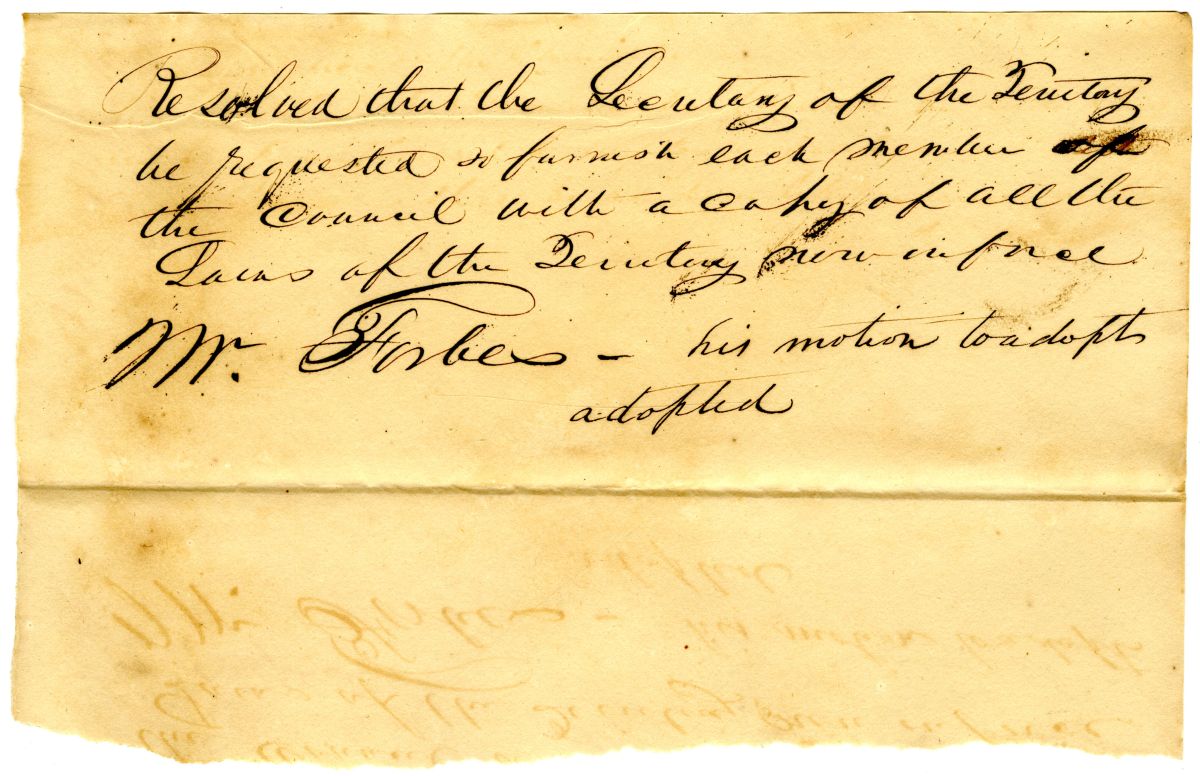 Resolved that the Secretary of the Territory
be requested to furnish each member of
the Council with a copy of all the
Laws of the Territory now in force
Mr. Forbes - his motion to adopt
adopted